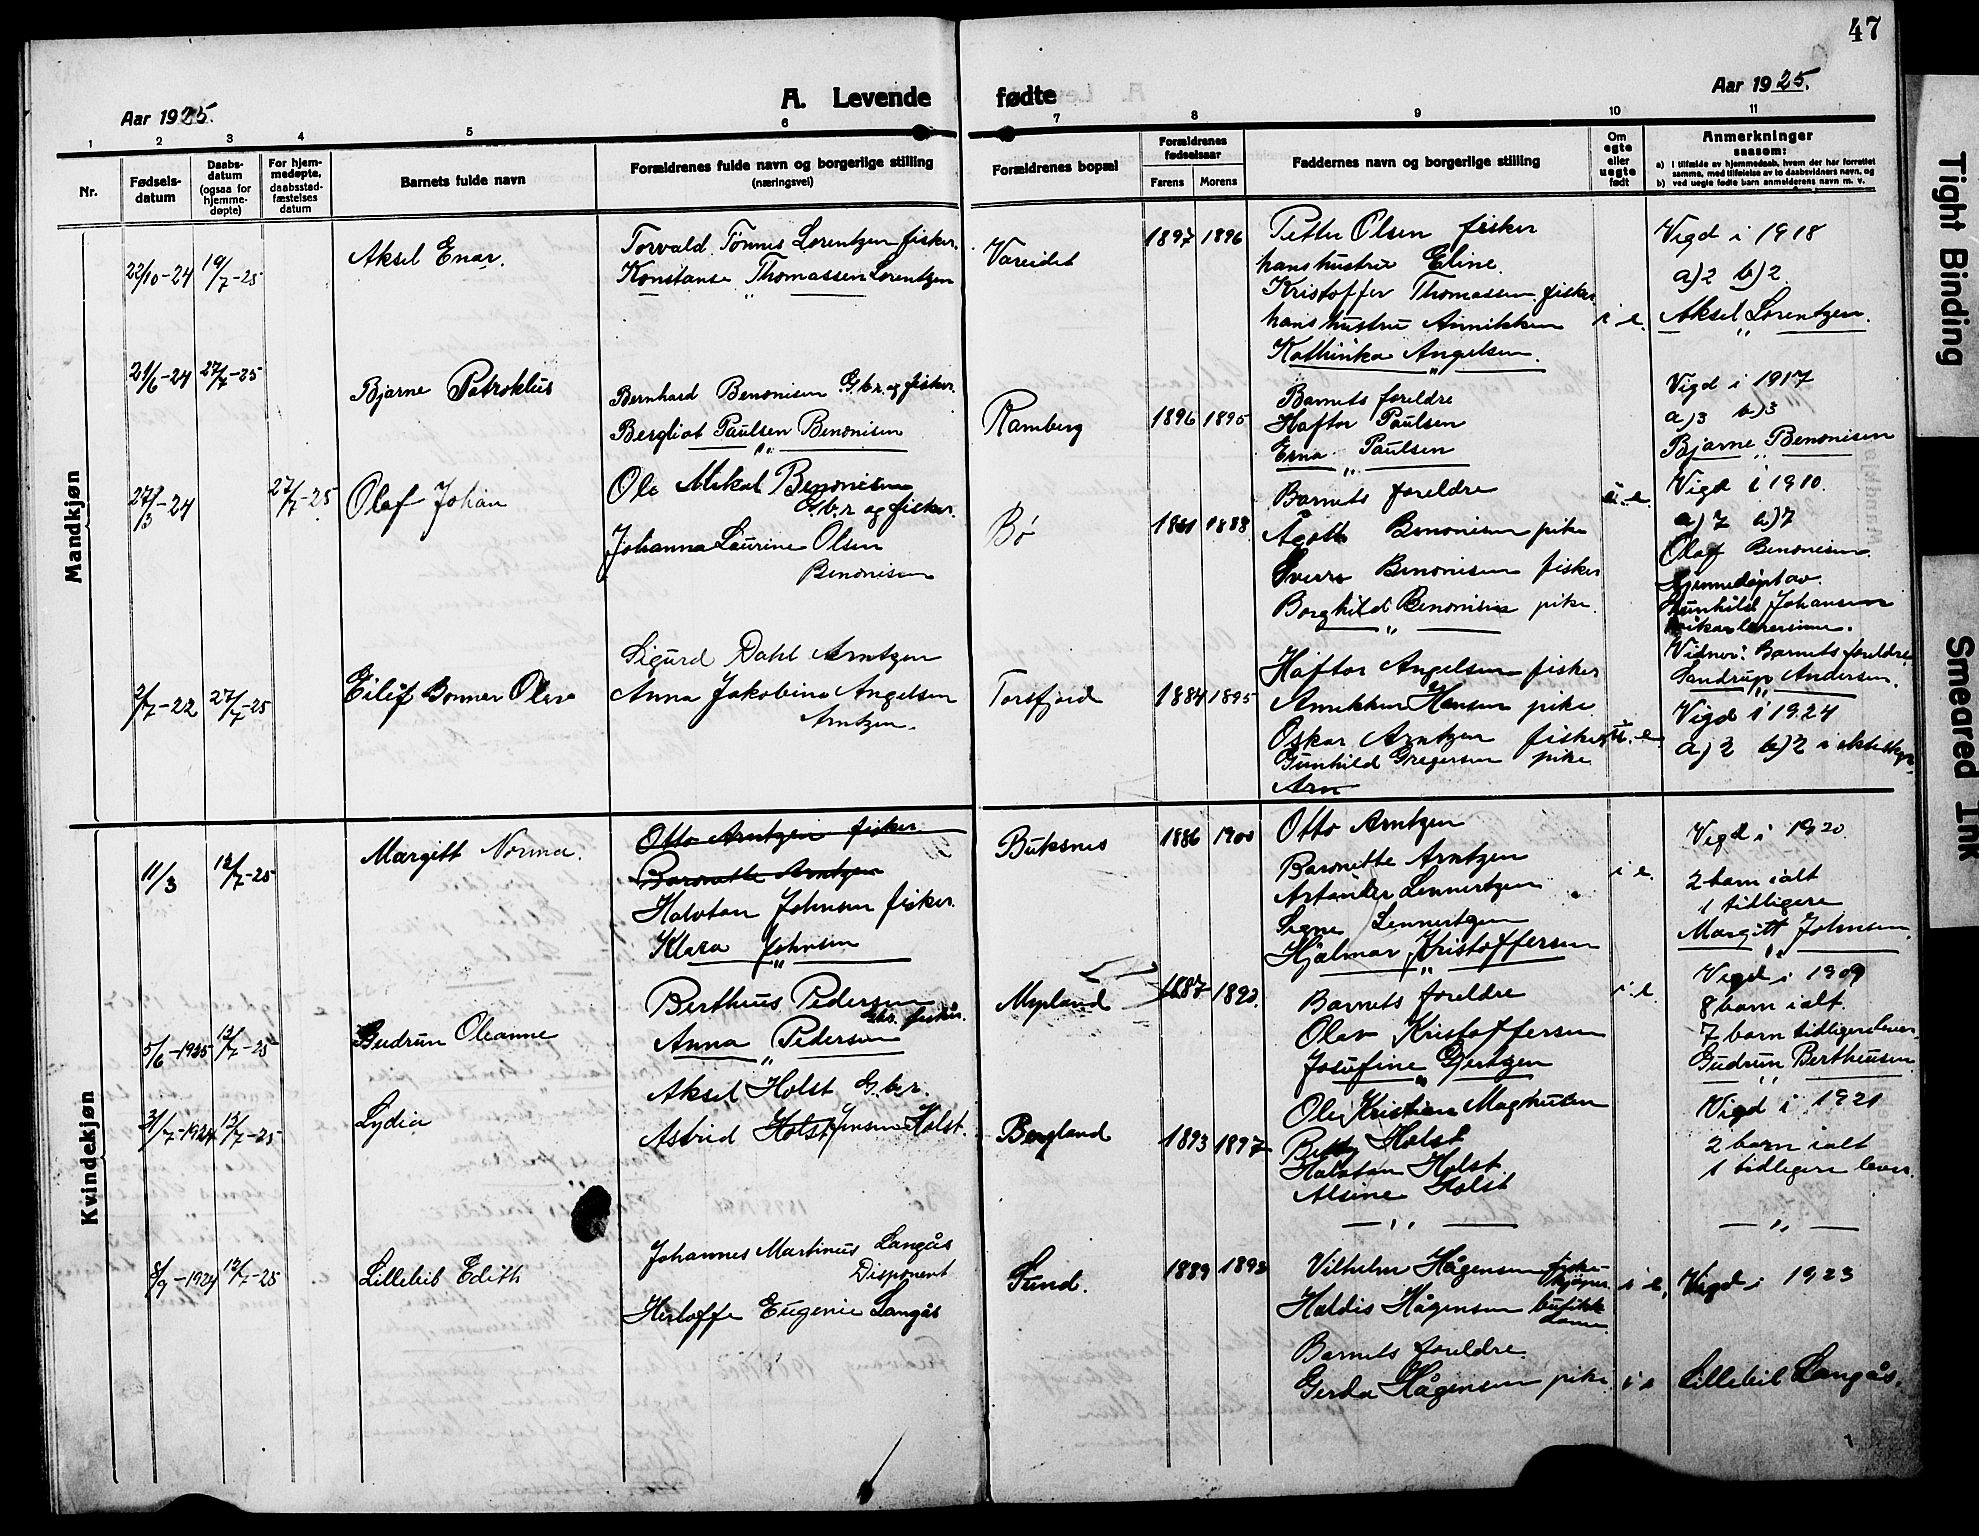 47
Aar 1925.
A. Levende fødte
Aar 1925.
1 2 3 4 5 6 7 8 9 10 11
Nr.
Fødsels-
datum
Daabs-
datum
(ogsaa for
hjemme-
døpte)
For hjem-
medøpte,
daabsstad-
fæstelses
datum
Barnets fulde navn
Forældrenes fulde navn og borgerlige stilling
(næringsvei)
Forældrenes bopæl
Forældrenes
fødselsaar
Farens Morens
Faddernes navn og borgerlige stilling
Om
egte
eller
uegte
født
Anmerkninger
saasom:
a) I tilfælde av hjemmedaab, hvem der har forrettet
samme, med tilføielse av to daabsvidners navn, og
b) ved uegte fødte barn anmelderens navn m. v.
Mandkjøn
22/10-24 19/7-25
Aksel Enar.
Torvald Tønnes Lorentzen fisker.
Konstanse Thomassen Lorentzen
Vareidet
1897 1896
Petter Olsen fisker
hans hustru Eline.
Kristoffer Thomassen fisker
hans hustru Annikken
Kathinka Angelsen.
i e.
Vigd i 1918
a) 2 b) 2.
Aksel Lorentzen.
21/6-24 27/7-25
Bjarne Patroklus
Bernhard Benonisen G.b.r. og fisker.
Bergliot Paulsen Benonisen
Ramberg
1896 1895
Barnets foreldre
Haftor Paulsen
Erna Paulsen
Vigd i 1917
a) 3 b) 3
Bjarne Benonisen
27/3-24 27/7-25
Olaf Johan
Ole Mikal Benonisen
G.b.r og fisker.
Johanna Laurine Olsen
Benonisen
Bø
1881 1888
Barnets foreldre
Ågoth Benonisen pike
Sverre Benonisen fisker
Borghild Benonisen pike.
i e.
Vigd i 1910.
a) 7 b) 7
Olaf Benonisen.
Hjemmedøpt av
Gunhild Johansen
vikarlærerinne.
Vidner: Barnets foreldre
Sandrup Andersen.
2/7-22 27/7-25
Eilif Bonner Oliva
Sigurd Dahl Arntzen
Anna Jakobine Angelsen
Arntzen.
Torsfjord
1884 1895
Haftor Angelsen fisker
Annikken Hansen pike
Oskar Arntzen fisker
Gunhild Gregersen pike
Arn
u. e.
Vigd i 1924
a) 2 b) 2 i
Kvindekjøn
11/3 12/7-25
Margitt Norma.
Otto Arntzen fisker
Baronette Arntzen
Halvtan Johnsen fisker.
Klara Johnsen
Buksnes
1886 1900
Otto Arntzen
Baronette Arntzen
Artander Lennertzen
Signe Lennertzen
Hjalmar Kristoffersen
i e.
Vigd i 1920.
2 barn ialt
1 tidligere
Margitt Johnsen.
5/6-1925 12/7-25
Gudrun Oleanne
Bertheus Pedersen
Gbr. fisker.
Anna Pedersen
Myrland
1887 1890.
Barnets foreldre
Olav Kristoffersen
Josefine Gjertzen
i e.
Vigd i 1909
8 barn ialt.
7 barn tidligere lever
Gudrun Bertheusen
31/7-1924 12/7-25
Lydia
Aksel Holst G.b.r.
Astrid Holst Jensen Holst.
Bergland
1893 1897
Ole Kristian Magnusen
Betty Holst
Halvtan Holst.
Alsine Holst
Vigd i 1921
2 barn ialt
1 tidligere lever.
8/9-1924 12/7-25
Lillebil Edith
Johannes Martinus Langås
Disponent
Herloffe Eugenie Langås
Sund.
1889 1892
Vilhelm Hågensen fiske-
kjøper
Haldis Hågensen butikk
dame
Barnets foreldre.
Gerda Hågensen pike
i e.
i e
Vigd i 1923
Lillebil Langås.
Tight Binding
Smeared Ink